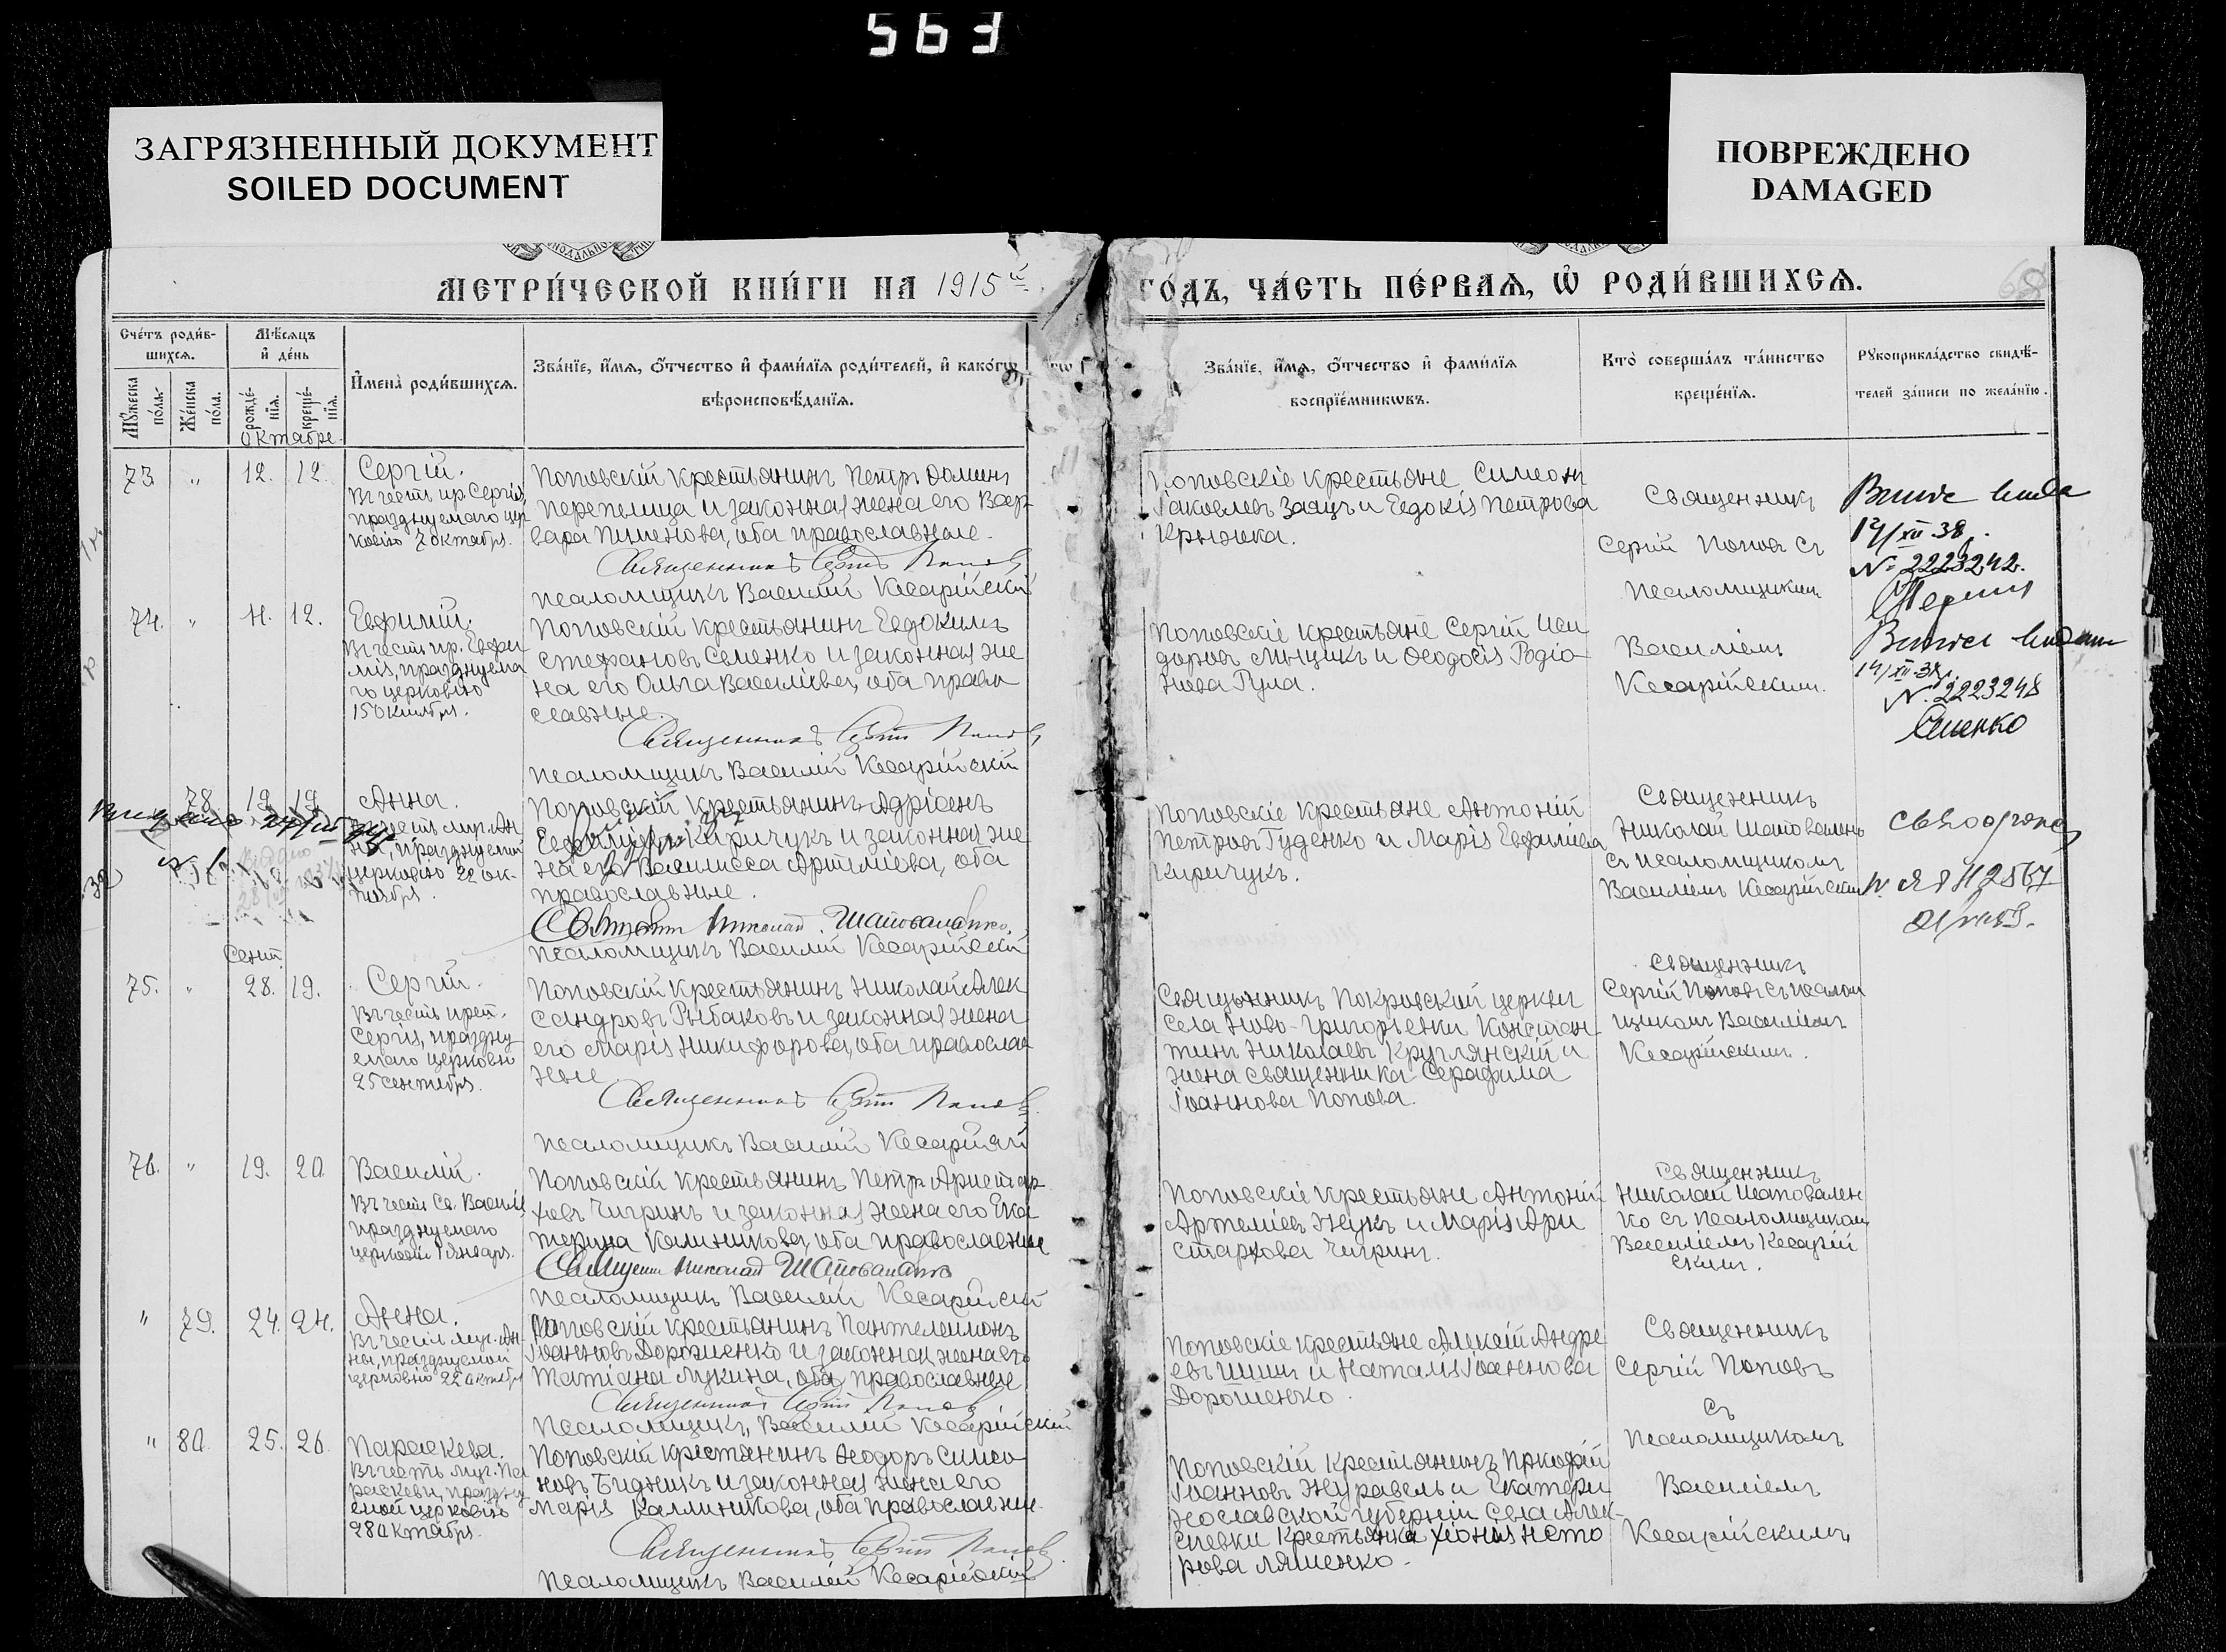 563
ЗАГРЯЗНЕННЫЙ ДОКУМЕНТ
SOILED DOCUMENT
ПОВРЕЖДЕНО
DAMAGED
МЕТРИ́ЧЕСКОЙ КНИ́ГИ НА 1915й
ГО́ДЪ, ЧА́СТЬ ПЕ́РВАѦ, Ѽ РОДИ́ВШИХСѦ.
Сче́тъ роди́в-
шихсѧ.
Мѣ́сѧцъ
и҆ де́нь
Мꙋ́жеска
по́ла.
Же́нска
по́ла.
рожде́-
нїѧ.
креще́-
нїѧ.
И҆мена̀ роди́вшихсѧ.
Зва́нїе, и҆́мѧ, ѻ҆́тчество и҆ фами́лїѧ роди́телей, и҆ како́гѡ
вѣроисповѣ́данїѧ.
Зва́нїе, и҆́мѧ, ѻ҆́тчество и҆ фами́лїѧ
воспрїе́мникѡвъ.
Кто̀ соверша́лъ та́инство
креще́нїѧ.
Рꙋкоприкла́дство свидѣ́-
телей за́писи по жела́нїю.
Октябре
73 " 12. 12.
Сергій.
Въ честь пр. Сергія,
празднуемаго цер
ковію 7 октября.
Поповскій крестьянинъ Петръ Домин
Перепелица и законная жена его Вар
вара Пименова, оба православные.
Священникъ Сергій Поповъ
Псаломщикъ Василій Кесарійскій
Поповскіе крестьяне Симеон
Іаковлевъ Заяцъ и Евдокія Петрова
Крыжка.
Священникъ
Сергій Попов съ
Псаломщикомъ
14/XII 38.
№ 2223242.
74. " 11. 12.
Евфимій.
Въ честь пр. Евфи
мія, празднуема
го церковію
15 октября.
Поповскій крестьянинъ Евдокимъ
Стефановъ Семенко и законная же
на его Ольга Василіева, оба право
славные.
Священникъ Сергій Поповъ
Псаломщикъ Василій Кесарійскій
Поповскіе крестьяне Сергій Иси
доров Мыцикъ и Ѳеодосія Родіо
нова Гула.
Василіемъ
Кесарійскимъ.
14/XII-38.
№ 2223248
78. 19 19
Анна.
Въ честь муч. Ан
ны, празднуемой
церковію 22 ок-
тября.
Поповскій крестьянинъ Адріанъ
Евфиміевъ Киричукъ и законная же
на его Василисса Артеміева, оба
православные.
Николай Шаповаленко.
Псаломщикъ Василій Кесарійскій
Поповскіе крестьяне Антоній
Петровъ Гуденко и Марія Евфиміева
Киричукъ.
Священникъ
Николай Шаповаленко
съ псаломщикомъ
Василіемъ Кесарійским
Сент.
75. " 28. 19.
Сергій.
Въ честь преп.
Сергія, праздну
емаго церковію
25 сентября.
Поповскій крестьянинъ Николай Алек
сандровъ Рыбаковъ и законная жена
его Марія Никифорова, оба православ
ные
Священникъ Сергій Поповъ.
Псаломщикъ Василій Кесарійскій
Священникъ Покровской церкви
села Ново-Григорьевки Констан-
тинъ Николаевъ Круглянскій и
жена священника Серафима
Іоаннова Попова.
Священникъ
Сергій Поповъ съ псалом
щикомъ Василіемъ
Кесарійскимъ.
76. " 19. 20
Василій.
Въ честь Св. Василія
празднуемаго
церковію 1 января.
Поповскій крестьянинъ Петръ Аристар
ховъ Чигринъ и законная жена его Ека
терина Калиникова, оба православные
Николай Шаповаленко
Псаломщикъ Василій Кесарійскій
Поповскіе крестьяне Антоній
Артеміевъ Жукъ и Марія Ари
стархова Чигринъ.
Священникъ
Николай Шаповален
ко съ псаломщиком
Василіемъ Кесарій
скимъ.
" 79. 24. 24.
Анна.
Въ честь муч. Ан-
ны, празднуемой
церковію 22 октября
Поповскій крестьянинъ Пантелеимонъ
Іоанновъ Дорошенко и законная жена его
Татіана Лукина, оба православные
Священникъ Сергій Поповъ
Псаломщикъ Василій Кесарійскій
Поповскіе крестьяне Алексій Андре
евъ Шишъ и Наталія Іоаннова
Дорошенко.
Священникъ
Сергій Поповъ
съ
" 80. 25. 26.
Параскева.
Въ честь муч. Па
раскевы, праздну
емой церковію
28 октября.
Поповскій крестьянинъ Ѳеодоръ Симео
новъ Бидникъ и законная жена его
Марія Каллиникова, оба православные.
Священникъ Сергій Поповъ
Псаломщикъ Василій Кесарійскій
Поповскій крестьянинъ Прокофій
Іоанновъ Журавель и Екатери
нославской губерніи села Алек-
сѣевки крестьянка Хіонія Несто
рова Ляшенко.
Псаломщикомъ
Василіемъ
Кесарійскимъ